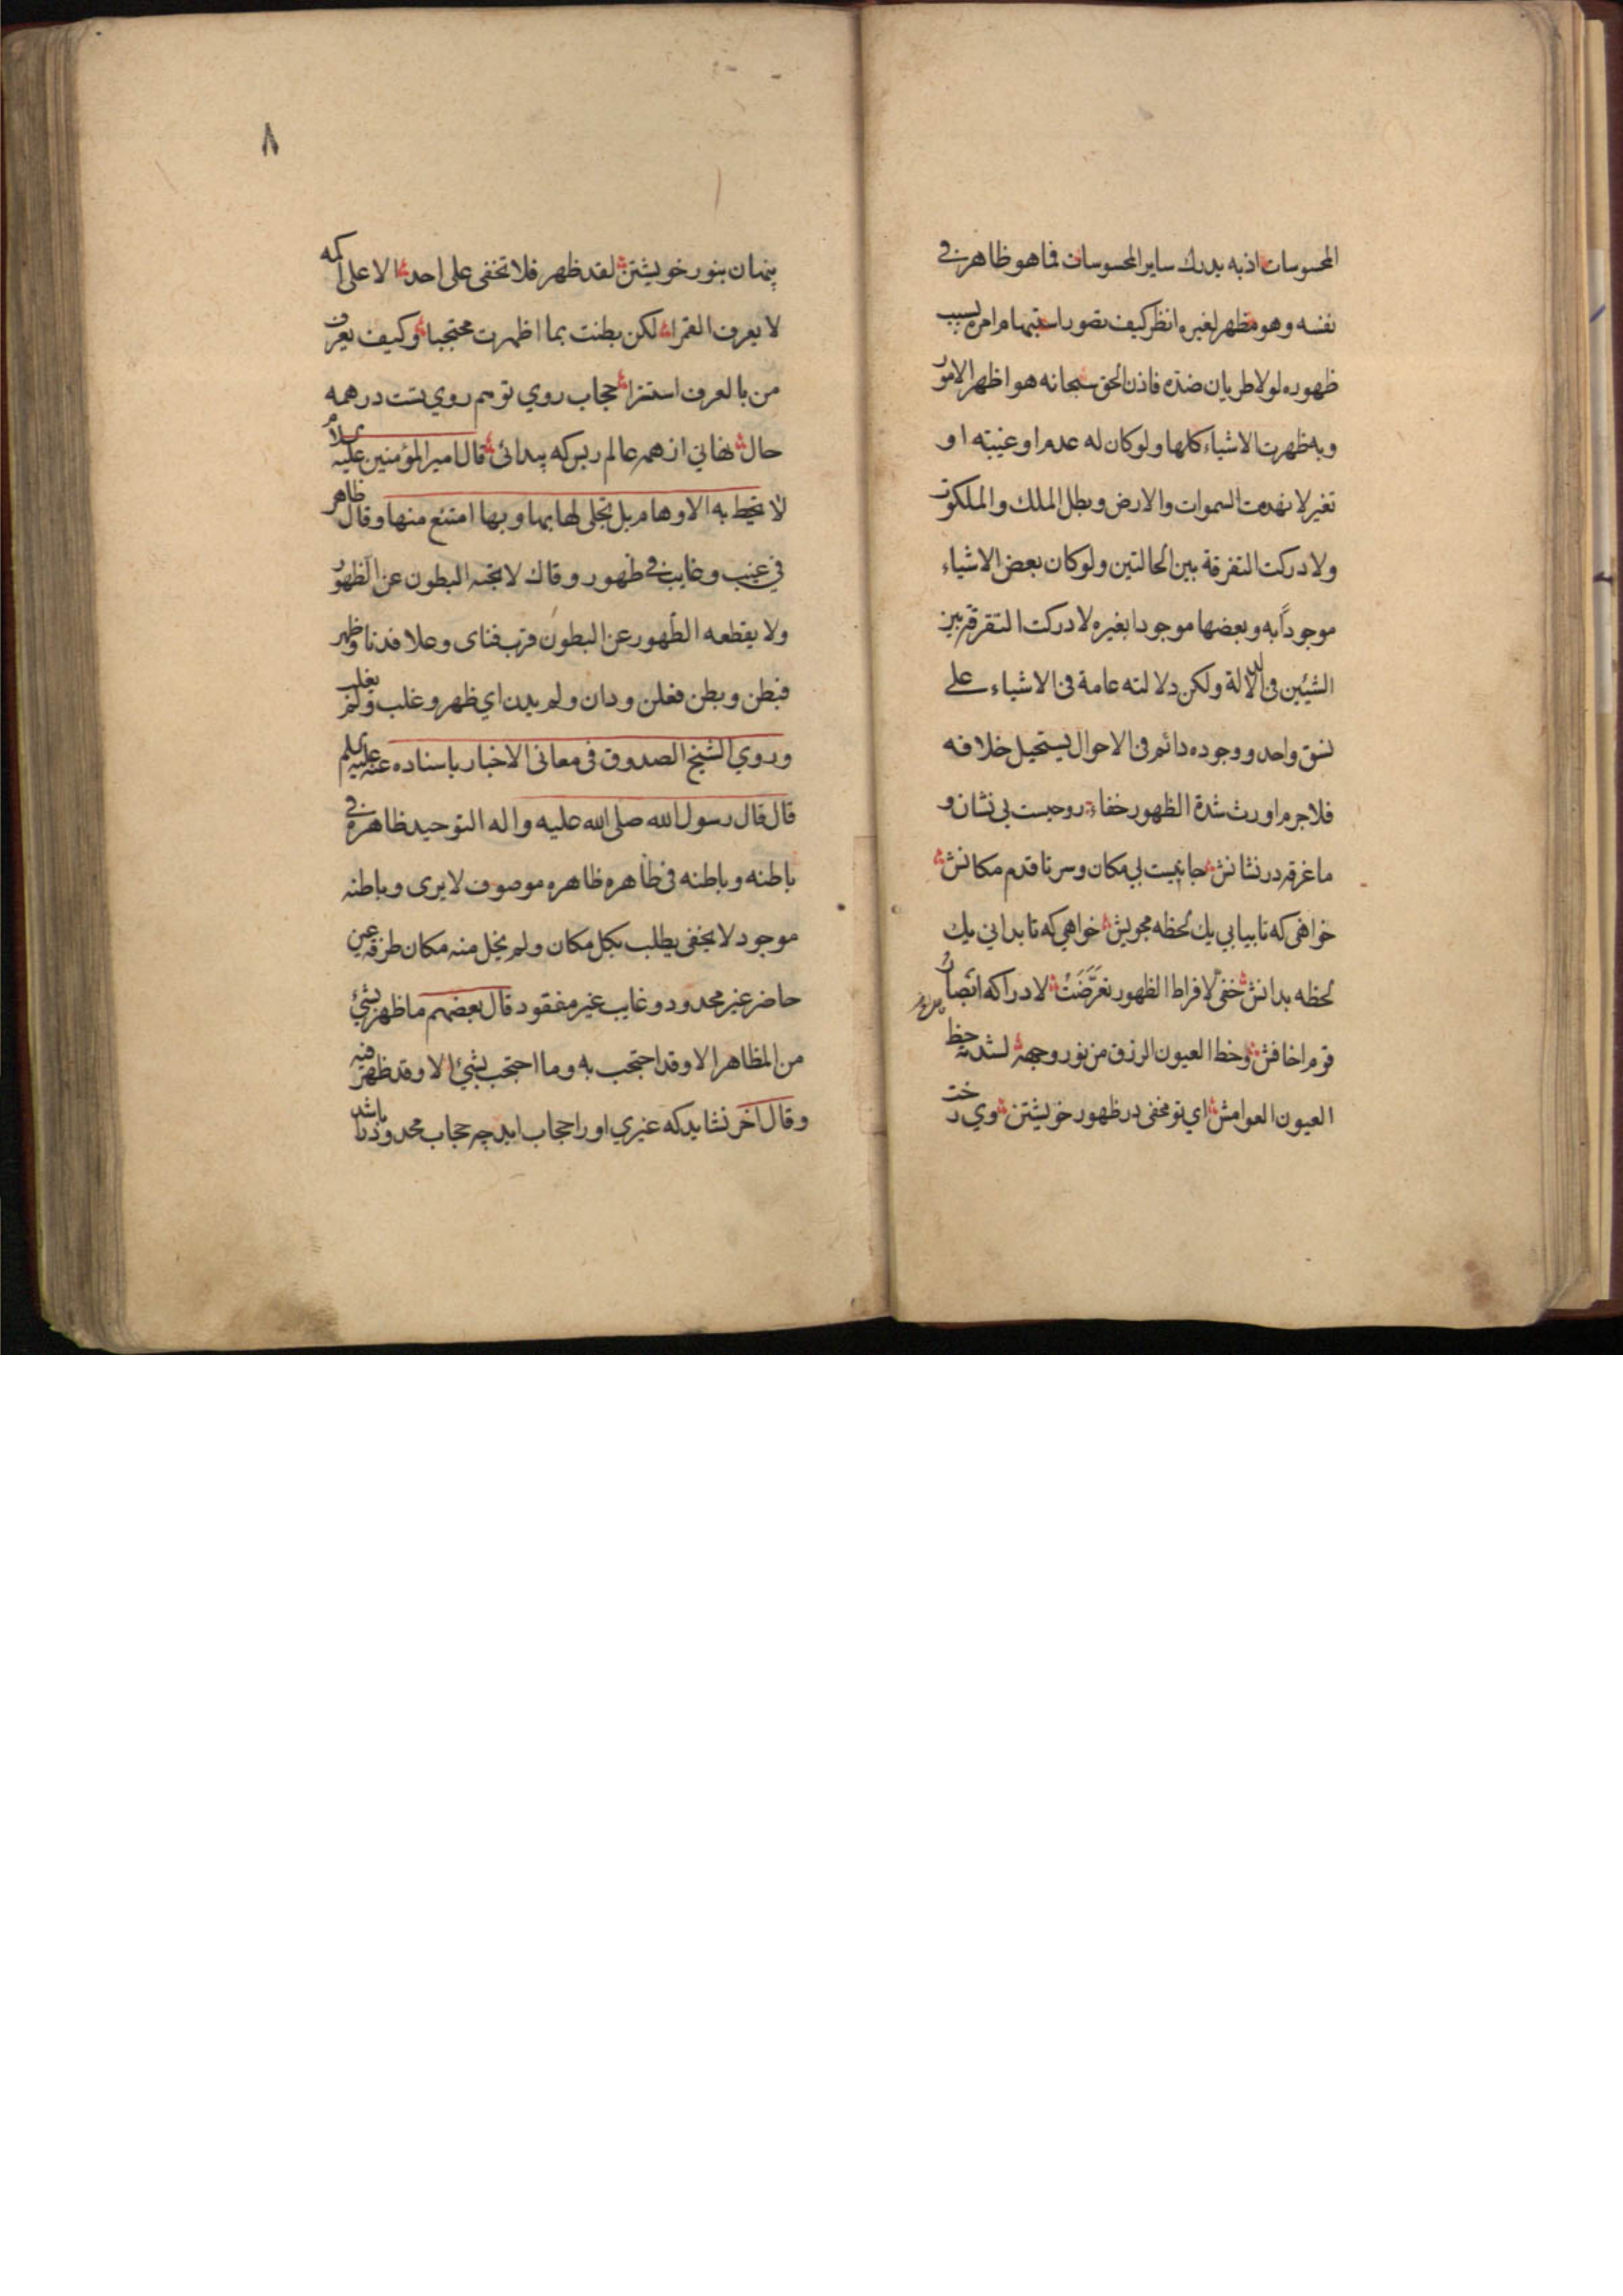 المحسوسات اذ به يدرك ساير المحسوسات فما هو ظاهر في
نفسه وهو مظهر لغيره انظر كيف تصور استبهام امره بسبب
ظهوره لولا طريان ضده فاذن الحق سبحانه هو اظهر الامور
وبه ظهرت الاشياء كلها ولو كان له عدم او غيبته او
تغير لانهدمت السموات والارض وبطل الملك والملكوت
ولادركت التفرقة بين الحالتين ولو كان بعض الاشياء
موجوداً به وبعضها موجودا بغيره لادركت التفرقة بين
الشيئين في الدلالة ولكن دلالته عامة في الاشياء على
نسق واحد ووجوده دائم في الاحوال يستحيل خلافه
فلا جرم اورث شدة الظهور خفاء روحيست بي نشان و
ما غرقه در نشانش جانيست بي مكان وسر تا قدم مكانش
خواهى كه تا بيابي يك لحظه مجويش خواهي كه تا بداني يك
لحظه بدانش خفي لافراط الظهور تعرضت لادراكه ابصار
قوم اخافش وحظ العيون الزرق من نور وجهه لشدته حظ
العيون العوامش اي تو مخفى در ظهور خويشتن وي رخت
٨
پنهان بنور خويشتن لقد ظهر فلا تخفى على احد الا على اكمه
لا يعرف القمرا لكن بطنت بما اظهرت محتجبا وكيف يعرف
من بالعرف استترا حجاب روي تو هم روي تست در همه
حال نهاني از همه عالم زبس كه پيدائى قال امير المؤمنين عليه السلام
لا تحيط به الاوهام بل تجلى لها بها وبها امتنع منها وقال ظاهر
في غيب وغايب في ظهور وقال لا يجنه البطون عن الظهور
ولا يقطعه الظهور عن البطون قرب فناى وعلا فدنا وظهر
فبطن وبطن فعلن ودان ولم يدن اي ظهر وغلب ولم يغلب
وروي الشيخ الصدوق في معاني الاخبار باسناده عنه عليه السلم
قال قال رسول الله صلى الله عليه واله التوحيد ظاهره في
باطنه وباطنه في ظاهره ظاهره موصوف لا يرى وباطنه
موجود لا يخفى يطلب بكل مكان ولم يخل منه مكان طرفة عين
حاضر غير محدود وغايب غير مفقود قال بعضهم ما ظهر بشئ
من المظاهر الا وقد احتجب به وما احتجب بشئ الا وقد ظهر فيه
وقال اخر نشايد كه غيري اورا حجاب ايد چه حجاب محدود را باشد